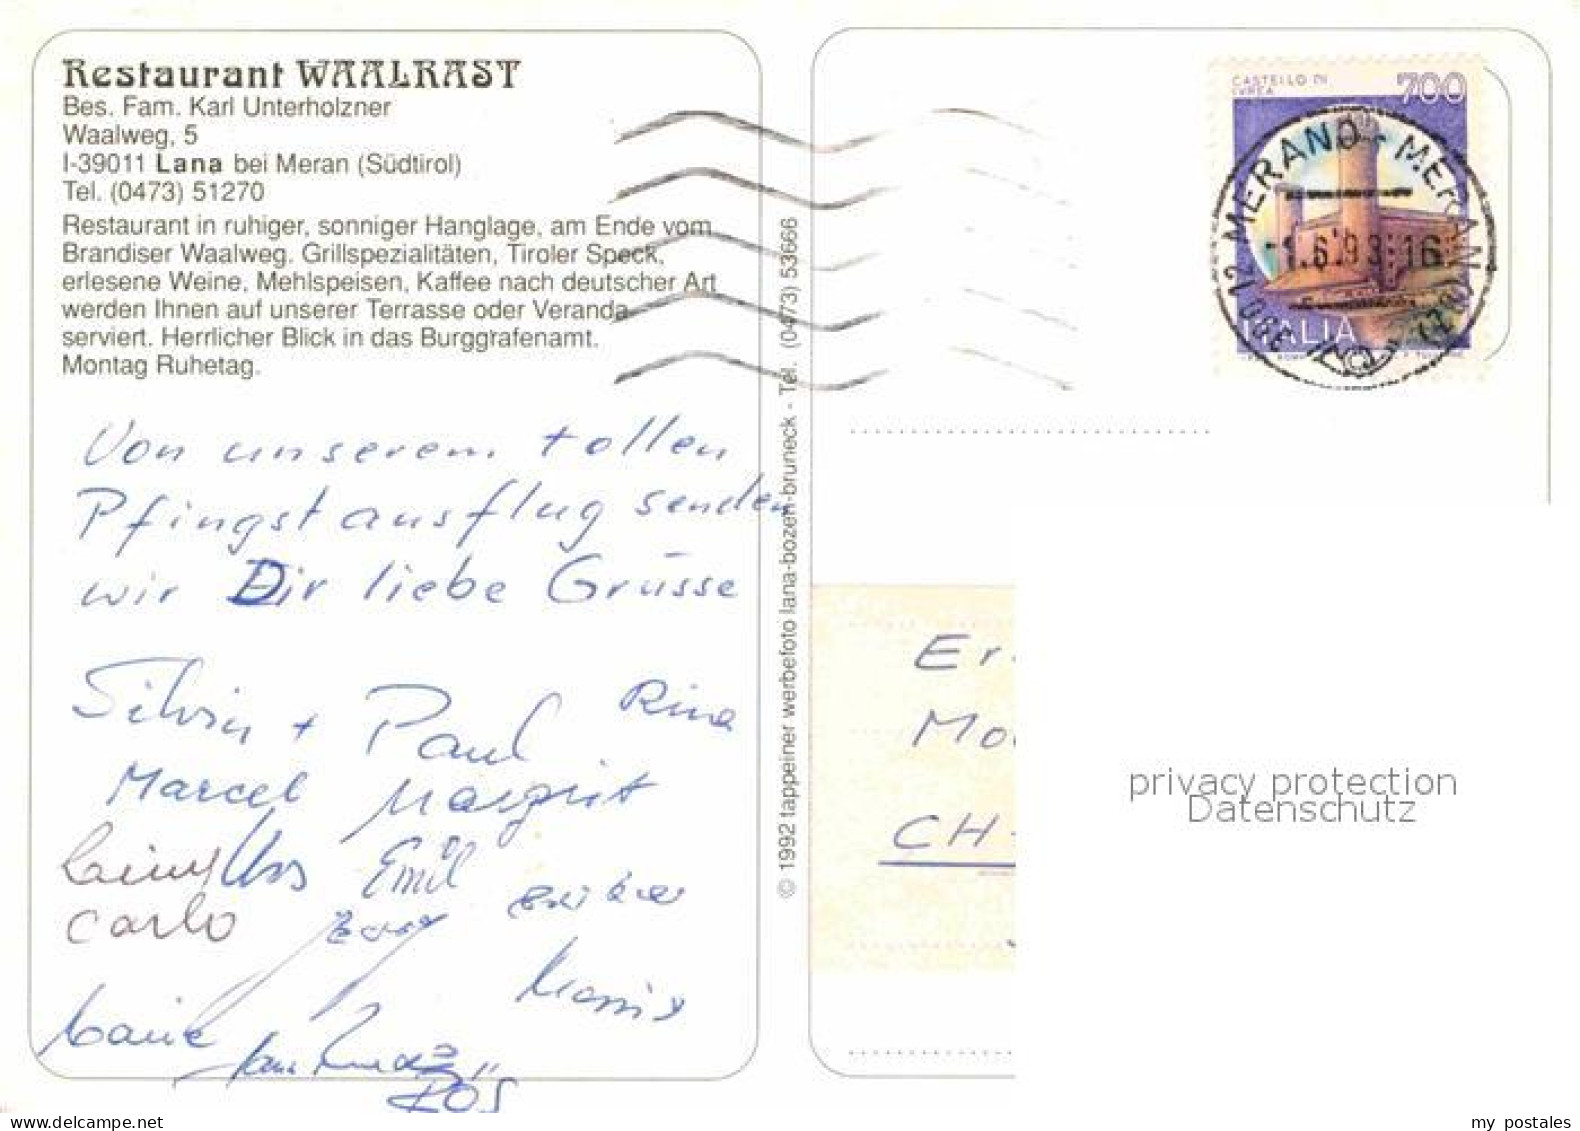 Restaurant WAALRAST
Bes. Fam. Karl Unterholzner
Waalweg, 5
I-39011 Lana bei Meran (Südtirol)
Tel. (0473) 51270
Restaurant in ruhiger, sonniger Hanglage, am Ende vom
Brandiser Waalweg. Grillspezialitäten, Tiroler Speck,
erlesene Weine, Mehlspeisen, Kaffee nach deutscher Art
werden Ihnen auf unserer Terrasse oder Veranda
serviert. Herrlicher Blick in das Burggrafenamt.
Montag Ruhetag.
Von unserem tollen
Pfingstausflug senden
wir Dir liebe Grüsse
Silvia + Paul Rina
Marcel Margrit
Urs Emil
Carlo
RÖS
© 1992 tappeiner werbefoto lana-bozen-bruneck - Tel. (0473) 53666
CASTELLO DI
IVREA
700
ITALIA
MERANO - MERAN
1.6.93.16
Er
Mo
CH-
privacy protection
Datenschutz
www.delcampe.net
my postales